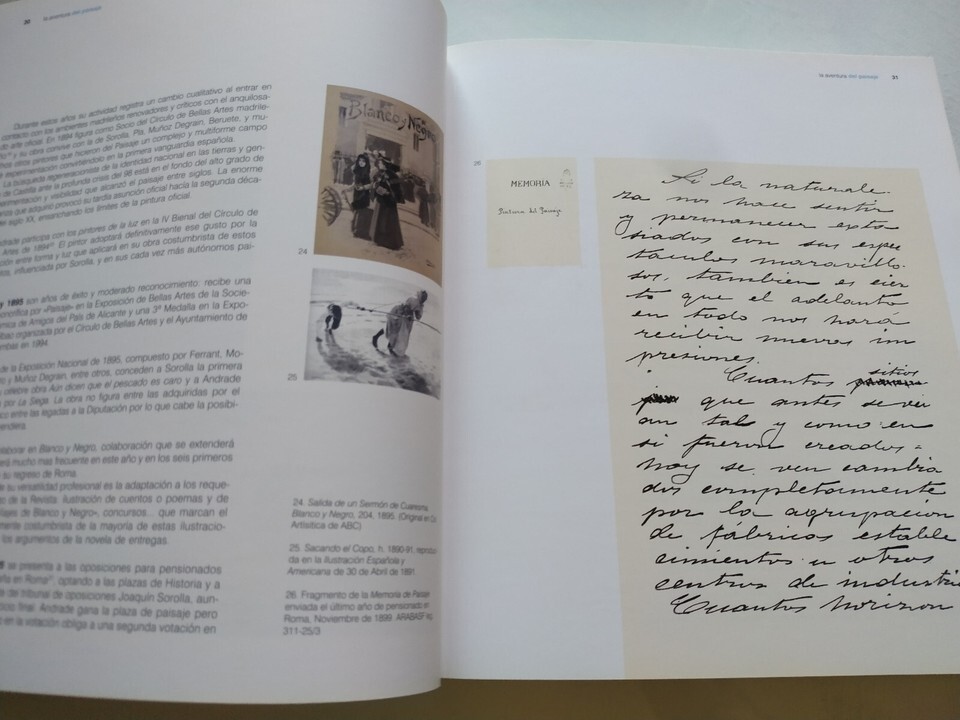 30 la aventura del paisaje
Durante estos años su actividad registra un cambio cualitativo al entrar en
contacto con los ambientes madrileños renovadores y críticos con el anquilosa-
do arte oficial. En 1894 figura como Socio del Círculo de Bellas Artes madrile-
y su obra convive con la de Sorolla, Pla, Muñoz Degrain, Beruete, y mu-
otros pintores que hicieron del Paisaje un complejo y multiforme campo
de experimentación convirtiéndolo en la primera vanguardia española.
La búsqueda regeneracionista de la identidad nacional en las tierras y gen-
de Castilla ante la profunda crisis del 98 está en el fondo del alto grado de
perimentación y visibilidad que alcanzó el paisaje entre siglos. La enorme
que adquirió provocó su tardía asunción oficial hacia la segunda déca-
siglo XX, ensanchando los límites de la pintura oficial.
ndrade participa con los pintores de la luz en la IV Bienal del Círculo de
Artes de 1894 El pintor adoptará definitivamente ese gusto por la
ción entre forma y luz que aplicará en su obra costumbrista de estos
os, influenciada por Sorolla, y en sus cada vez más autónomos pai-
y 1895 son años de éxito y moderado reconocimiento: recibe una
onorífica por «Paisaje» en la Exposición de Bellas Artes de la Socie-
mica de Amigos del País de Alicante y una 3ª Medalla en la Expo-
lbao organizada por el Círculo de Bellas Artes y el Ayuntamiento de
mbas en 1994.
de la Exposición Nacional de 1895, compuesto por Ferrant, Mo-
o y Muñoz Degrain, entre otros, conceden a Sorolla la primera
célebre obra Aún dicen que el pescado es caro y a Andrade
por La Siega. La obra no figura entre las adquiridas por el
co entre las legadas a la Diputación por lo que cabe la posibi-
endiera.
laborar en Blanco y Negro, colaboración que se extenderá
erá mucho mas frecuente en este año y en los seis primeros
su regreso de Roma.
e su versatilidad profesional es la adaptación a los reque-
o de la Revista: ilustración de cuentos o poemas y de
ajes de Blanco y Negro», concursos... que marcan el
mente costumbrista de la mayoría de estas ilustracio-
los argumentos de la novela de entregas.
se presenta a las oposiciones para pensionados
ña en Roma, optando a las plazas de Historia y a
de tribunal de oposiciones Joaquín Sorolla, aun-
cio final. Andrade gana la plaza de paisaje pero
o en la votación obliga a una segunda votación en
Blanco y Negro
24
25
24. Salida de un Sermón de Cuaresma,
Blanco y Negro, 204, 1895. (Original en Co
Artísitica de ABC)
25. Sacando el Copo, h. 1890-91, reproduc
da en la Ilustración Española y
Americana de 30 de Abril de 1891.
26. Fragmento de la Memoria de Paisaje
enviada el último año de pensionado en
Roma, Noviembre de 1899. ARABASF leg.
311-25/3
la aventura del paisaje 31
26
MEMORIA
Pintura del Paisaje
Si la naturale-
za nos hace sentir
y permanecer exta
siados con sus espec
táculos maravillo-
sos, tambien es cier
to que el adelanto
en todo nos hará
recibir nuevas im
presiones.
Cuantos sitios
que antes se vei
an tal y como en
si fueron creados-
hoy se ven cambia
dos completamente
por la agrupación
de fábricas estable
cimientos u otros
centros de industria
Cuantos horizon